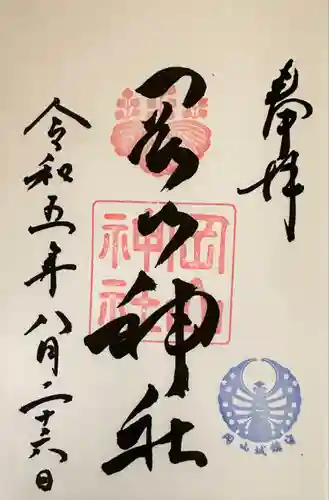 奉拝
岡山神社
岡山
神社
令和五年八月二十六日
岡山城鎮護